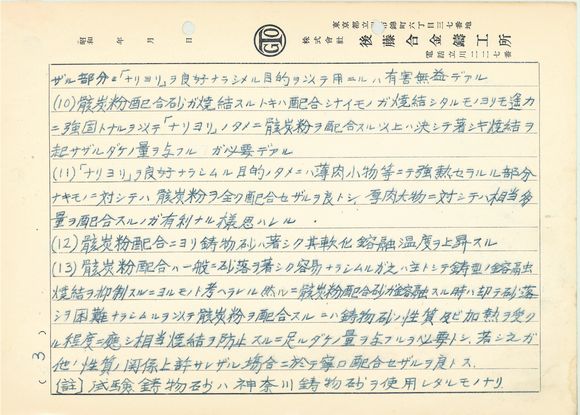 東京都立川市錦町六丁目三七番地
昭和　年　月　日
GTO
株式會社 後藤合金鑄工所
電話立川二二二七番
ザル部分ニ「ナリヨリ」ヲ良好ナラシメル目的ヲ以テ用ニルハ有害無益デアル
(10) 骸炭粉配合砂ガ焼結スルトキハ配合シナイモノガ焼結シタルモノヨリモ遙カ
ニ強固トナルヲ以テ「ナリヨリ」ノタメニ骸炭粉ヲ配合スル以上ハ決シテ著シキ焼結ヲ
起サザルダケノ量ヲ与フル ガ必要デアル
(11)「ナリヨリ」ヲ良好ナラシムル目的ノタメニハ薄肉小物等ニテ強熱セラルル部分
ナキモノニ対シテハ 骸炭粉ヲ全ク配合セザルヲ良トシ、厚肉大物ニ対シテハ相当多
量ヲ配合スルノガ有利ナル様思ハレル .
(12) 骸炭粉配合ニヨリ鋳物砂ハ著シク其軟化 鎔融温度ヲ上昇スル
(13) 骸炭粉配合ハ一般ニ砂落ヲ著シク容易ナラシムルガ之ハ主トシテ鋳型ノ鎔融
焼結ヲ抑制スルニヨルモノト考ヘラレル 然ルニ骸炭粉配合砂ガ鎔融スル時ハ却テ砂落
シヲ困難ナラシムルヲ以テ骸炭粉ヲ配合スルニハ鋳物砂ノ性質及ビ加熱ヲ受ク
ル程度ニ應ジ相当焼結ヲ防止スルニ足ルダケ量ヲ与フルヲ必要トシ、若シ之ガ
他ノ性質ノ関係上許サレザル場合ニ於テ寧ロ配合セザルヲ良トス.
〔註〕試驗鋳物砂ハ神奈川鋳物砂ヲ使用シタルモノナリ
(3)